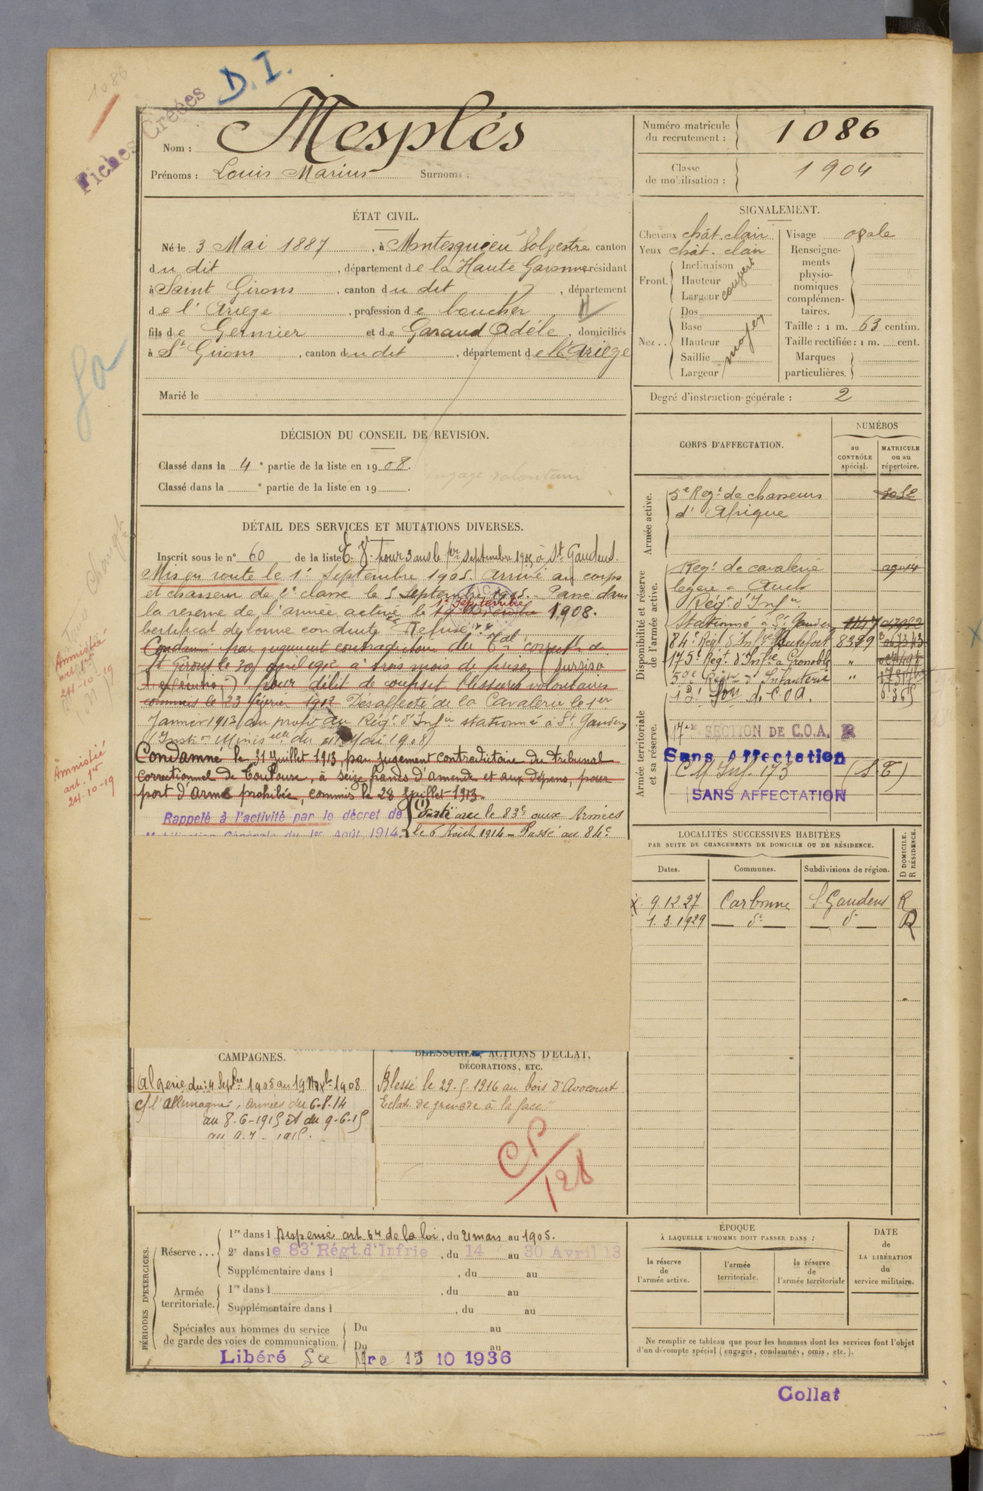 1086
Fiches Créées
D.I.
Nom : Mesplés
Prénoms : Louis Marius Surnoms :
Numéro matricule du recrutement : 1086
Classe de mobilisation : 1904
ÉTAT CIVIL.
Né le 3 Mai 1887, à Montesquieu Volvestre canton
du dit, département de la Haute Garonne, résidant
à Saint Girons, canton du dit, département
de l'Ariège, profession de boucher
fils de Germier et de Garaud Adèle, domiciliés
à St Girons, canton du dit, département de l'Ariège
Marié le
SIGNALEMENT.
Cheveux chât. clair
Yeux chât. clair
Front. Inclinaison
Hauteur
Largeur
Nez.. Dos
Base
Hauteur
Saillie
Largeur
moyen
Visage ovale
Renseignements physionomiques complémentaires.
Taille : 1 m. 63 centim.
Taille rectifiée : 1 m. cent.
Marques particulières.
Degré d'instruction générale : 2
DÉCISION DU CONSEIL DE REVISION.
Classé dans la 4e partie de la liste en 1908.
Classé dans la e partie de la liste en 19 .
DÉTAIL DES SERVICES ET MUTATIONS DIVERSES.
Inscrit sous le n° 60 de la liste E. V. pour 3 ans le 1er Septembre 1905 à St Gaudens.
Mis en route le 1er Septembre 1905. Arrivé au corps
et chasseur de 2e classe le 5 Septembre 1905. Passé dans
la réserve de l'armée active le 1er Septembre 1908.
Certificat de bonne conduite "Refusé"
Condamné par jugement contradictoire du Tal correct. de
St Girons le 30 avril 1912 à trois mois de prison (sursis
) pour délit de coups et blessures volontaires
commis le 23 février 1912 Désaffecté de la Cavalerie le 1er
Janvier 1913 au profit du Régt d'Infie stationné à St Gaudens
(Instron Minis elle du Mai 1908)
Condamné le 31 Juillet 1913 par jugement contradictoire du Tribunal
correctionnel de Toulouse, à seize francs d'amende et aux dépens, pour
port d'arme prohibée, commis le 28 Juillet 1913.
Rappelé à l'activité par le décret de
Mobilisation Générale du 1er Août 1914.
Parti avec le 83e aux Armées
le 6 Août 1914 - Passé au 84e
Amnistié
art. 1er
24-10-19
Amnistié
art. 1er
24-10-19
CORPS D'AFFECTATION.
NUMÉROS
au CONTRÔLE spécial.
MATRICULE ou au répertoire.
Armée active.
5e Régt de chasseurs
d'Afrique
Disponibilité et réserve de l'armée active.
Régt de cavalerie
légère - Auch
Régt d'Infie
stationné à St Gaudens
84e Régt d'Infie 8399
175e Régt d'Infie à Grenoble "
Régt d'Infanterie "
Armée territoriale et sa réserve.
17e SECTION DE C.O.A.
Sans Affectation
C M Inf. 173 (S.T)
SANS AFFECTATION
LOCALITÉS SUCCESSIVES HABITÉES
PAR SUITE DE CHANGEMENTS DE DOMICILE OU DE RÉSIDENCE.
Dates. Communes. Subdivisions de région. D DOMICILE. R RÉSIDENCE.
9.12.27 Carbonne St Gaudens R
1.3.1929 — do — — do — R
CAMPAGNES.
Algérie du 4 Septbre 1905 au 19 1908
C/ l'Allemagne, Armées du 6-8-14
au 8-6-1915 et du 9-6-15
BLESSURES, ACTIONS D'ÉCLAT, DÉCORATIONS, ETC.
Blessé le 29-5-1916 au bois d'Avocourt
Eclat de grenade à la face
CP/128
PÉRIODES D'EXERCICES.
Réserve... 1re dans l Dispensé art. de la loi, du 21 mars au 1905.
2e dans le 83 Régt. d'Infrie, du 14 au 30 Avril 13
Supplémentaire dans l , du au
Armée territoriale. 1re dans l , du au
Supplémentaire dans l , du au
Spéciales aux hommes du service de garde des voies de communication. Du au
Du au
Libéré Sce Mre 15 10 1936
ÉPOQUE
À LAQUELLE L'HOMME DOIT PASSER DANS :
la réserve de l'armée active.
l'armée territoriale.
la réserve de l'armée territoriale
DATE de LA LIBÉRATION du service militaire.
Ne remplir ce tableau que pour les hommes dont les services font l'objet
d'un décompte spécial (engagés, condamnés, omis, etc.).
Collat